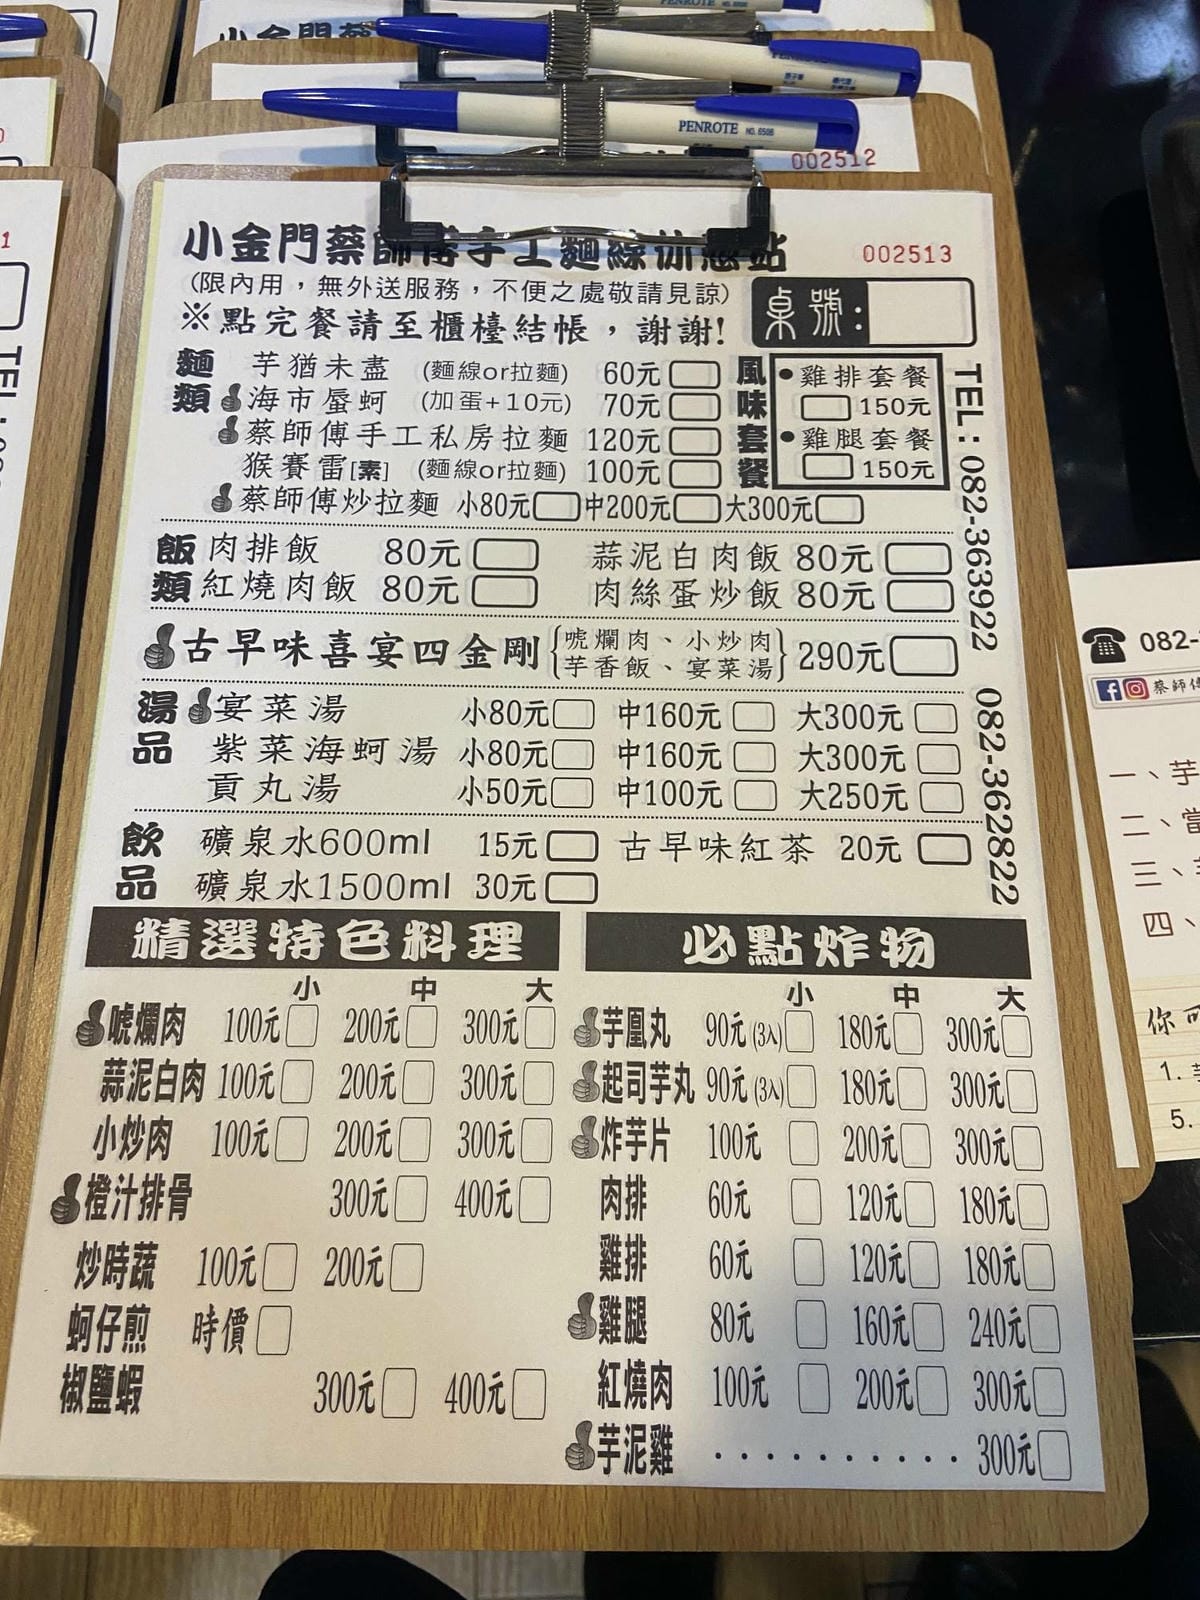 PENROTE
PENROTE NO. 6506
002512
小金門蔡師傅手工麵線休憩站
002513
(限內用，無外送服務，不便之處敬請見諒)
※點完餐請至櫃檯結帳，謝謝!
桌號：
麵類
芋猶未盡 (麵線or拉麵) 60元
海市蜃蚵 (加蛋+10元) 70元
蔡師傅手工私房拉麵 120元
猴賽雷[素] (麵線or拉麵) 100元
蔡師傅炒拉麵 小80元 中200元 大300元
風味套餐
●雞排套餐
150元
●雞腿套餐
150元
TEL：082-363922 082-362822
飯類
肉排飯 80元 蒜泥白肉飯 80元
紅燒肉飯 80元 肉絲蛋炒飯 80元
古早味喜宴四金剛 {唬爛肉、小炒肉 芋香飯、宴菜湯} 290元
湯品
宴菜湯 小80元 中160元 大300元
紫菜海蚵湯 小80元 中160元 大300元
貢丸湯 小50元 中100元 大250元
飲品
礦泉水600ml 15元 古早味紅茶 20元
礦泉水1500ml 30元
精選特色料理
小 中 大
唬爛肉 100元 200元 300元
蒜泥白肉 100元 200元 300元
小炒肉 100元 200元 300元
橙汁排骨 300元 400元
炒時蔬 100元 200元
蚵仔煎 時價
椒鹽蝦 300元 400元
必點炸物
小 中 大
芋凰丸 90元(3入) 180元 300元
起司芋丸 90元(3入) 180元 300元
炸芋片 100元 200元 300元
肉排 60元 120元 180元
雞排 60元 120元 180元
雞腿 80元 160元 240元
紅燒肉 100元 200元 300元
芋泥雞 . . . . . . . . . . 300元
082-
蔡師傅
一、芋
二、當
三、
四、
你可
1.
5.